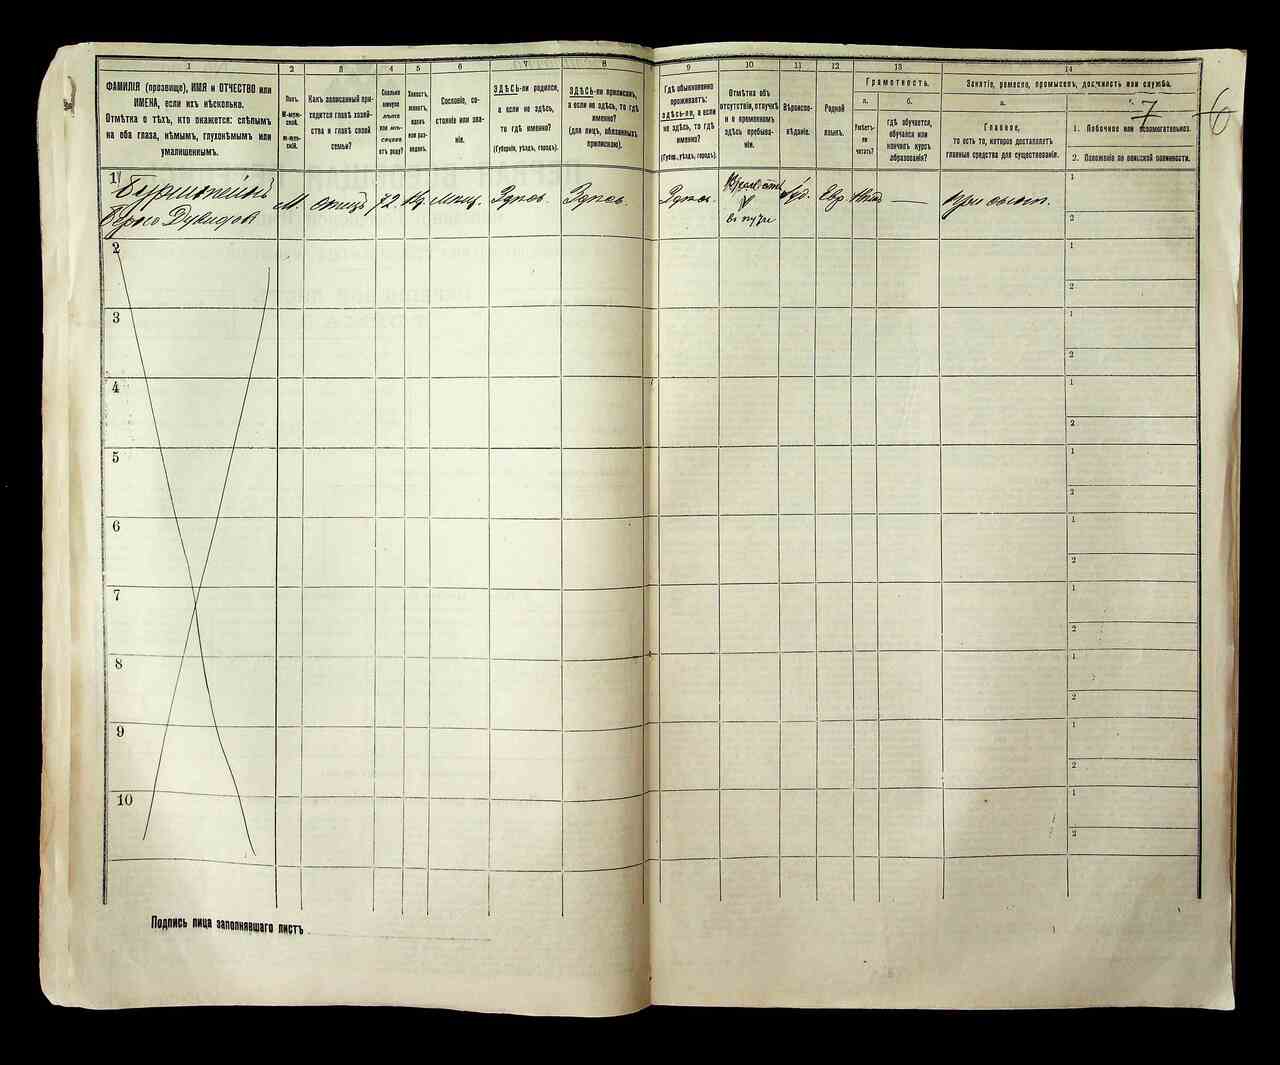 1
2
3
4
5
6
7
8
9
10
11
12
13
14
ФАМИЛІЯ (прозвище), ИМЯ и ОТЧЕСТВО или
ИМЕНА, если ихъ нѣсколько.
Отмѣтка о тѣхъ, кто окажется: слѣпымъ
на оба глаза, нѣмымъ, глухонѣмымъ или
умалишеннымъ.
Полъ.
М-муж-
ской.
Ж-жен-
скій.
Какъ записанный при-
ходится главѣ хозяй-
ства и главѣ своей
семьи?
Сколько
минуло
лѣтъ
или мѣ-
сяцевъ
отъ роду?
Холостъ,
женатъ,
вдовъ
или раз-
веденъ.
Сословіе, со-
стояніе или зва-
ніе.
ЗДѢСЬ-ли родился,
а если не здѣсь,
то гдѣ именно?
(Губернія, уѣздъ, городъ).
ЗДѢСЬ-ли приписанъ,
а если не здѣсь, то гдѣ
именно?
(для лицъ, обязанныхъ
припискою).
Гдѣ обыкновенно
проживаетъ:
здѣсь-ли, а если
не здѣсь, то гдѣ
именно?
(Губер., уѣздъ, городъ).
Отмѣтка объ
отсутствіи, отлучкѣ
и о временномъ
здѣсь пребыва-
ніи.
Вѣроиспо-
вѣданіе.
Родной
языкъ.
Грамотность.
а.
Умѣетъ-
ли
читать?
б.
гдѣ обучается,
обучался или
кончилъ курсъ
образованія?
Занятіе, ремесло, промыселъ, должность или служба.
а.
Главное,
то есть то, которое доставляетъ
главныя средства для существованія.
7
6
1. Побочное или вспомогательное.
2. Положеніе по воинской повинности.
1
Дувидов
М. отецъ 72 Вд Мѣщ. Здѣсь. Здѣсь. Здѣсь. Іуд. Евр —
1
2
2
1
2
3
1
2
4
1
2
5
1
2
6
1
2
7
1
2
8
1
2
9
1
2
10
1
2
Подпись лица заполнявшаго листъ